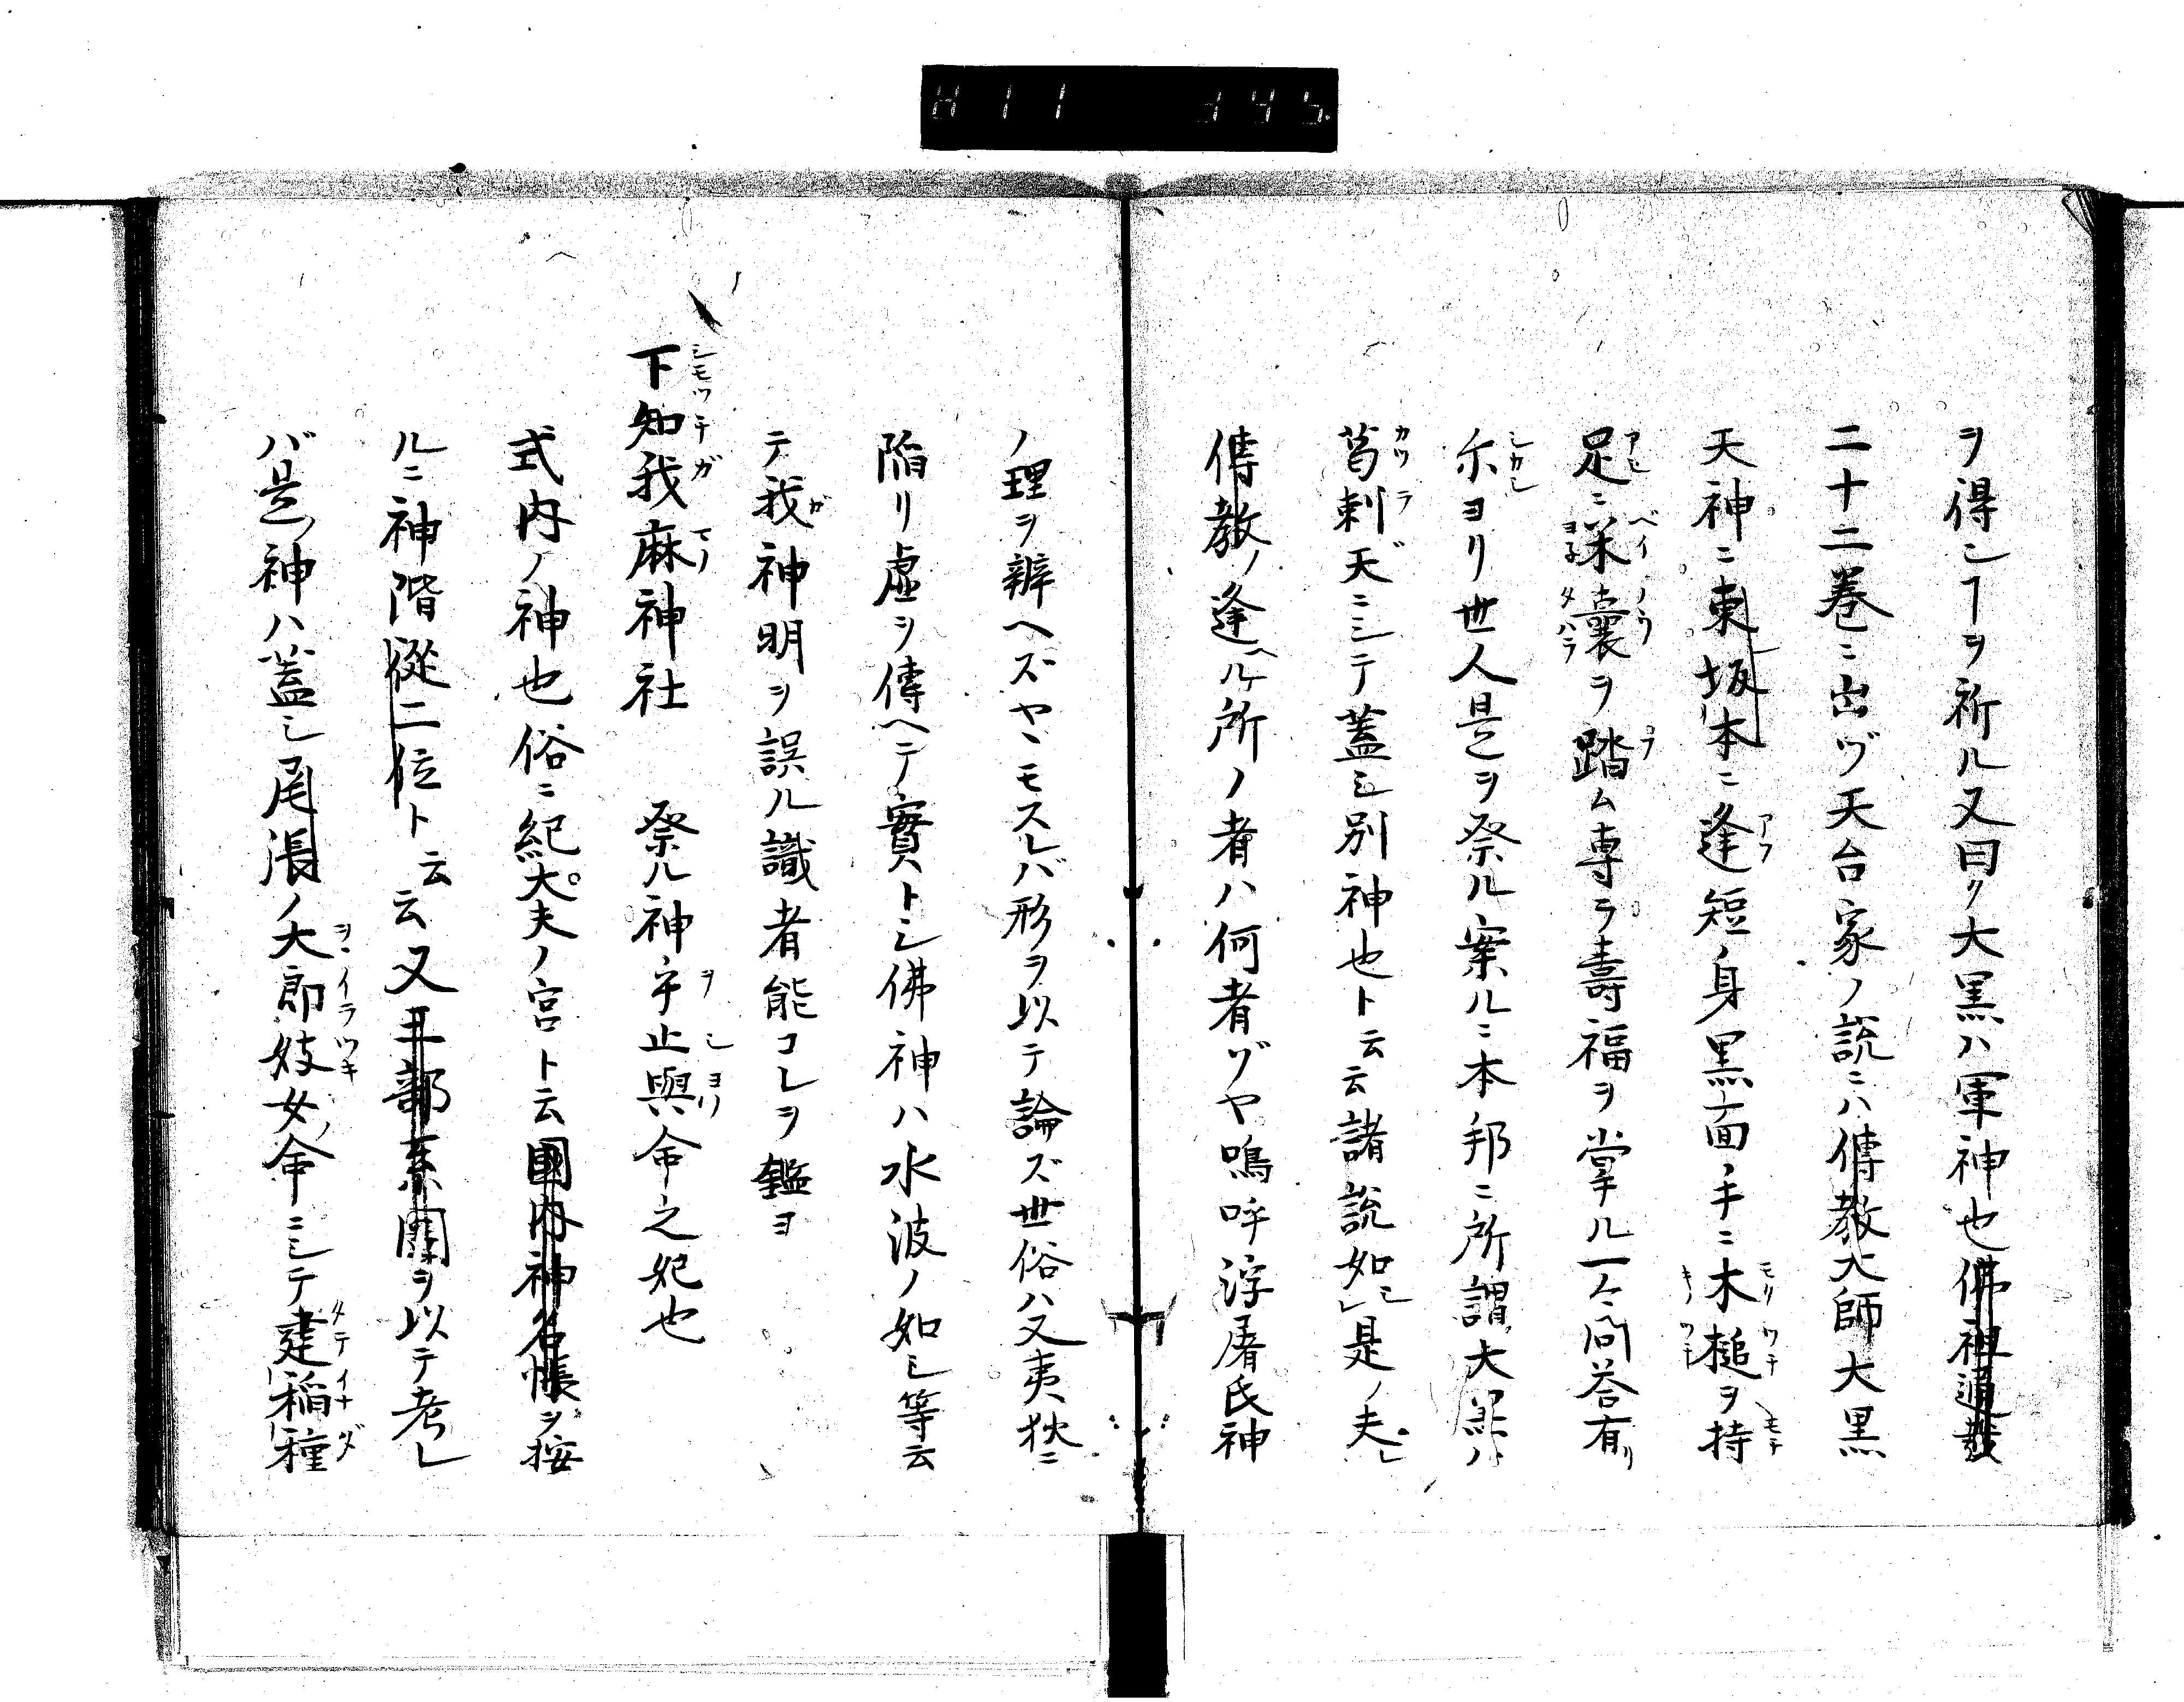 ヲ得シヿヲ祈ル又曰ク大黒ハ軍神也佛祖通載
二十二巻ニ出ヅ天台家ノ説ニハ傳教大師大黒
天神ニ東坂本ニ逢短ノ身黒面手ニ木槌ヲ持
足ニ米囊ヲ踏ム専ラ壽福ヲ掌ル一々問荅有リ
尓ヨリ世人是ヲ祭ル案ルニ本邦ニ所謂大黒ハ
葛剌天ニシテ蓋シ別神也ト云云諸説如レ是ノ夫レ
傳教ノ逢ヘル所ノ者ハ何者ゾヤ嗚呼浮屠氏神
ノ理ヲ辨ヘズヤヽモスレバ形ヲ以テ論ズ世俗ハ又夷狄ニ
陥リ虚ヲ傳ヘテ實トシ佛神ハ水波ノ如シ等云
テ我神明ヲ誤ル識者能コレヲ鑑ヨ
下知我麻神社 祭ル神乎止與命之妃也
式内ノ神也俗ニ紀大夫ノ宮ト云國内神名帳ヲ按
ルニ神階從二位ト云云又丑部系圖ヲ以テ考レ
バ是ノ神ハ蓋シ尾張ノ大郎妓女命ニシテ建稲種